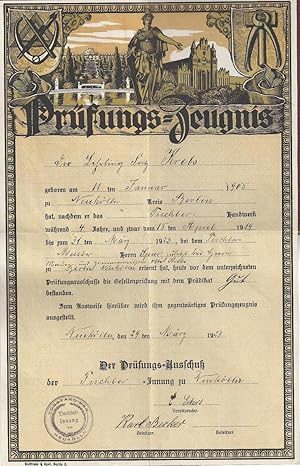 Prüfungs-Zeugnis
Der Lehrling Fritz Krebs
geboren am 18 ten Januar 1905
zu Neukölln Kreis Berlin
hat, nachdem er das Tischler Handwerk
während 4 Jahre, und zwar vom 15 ten April 1919
bis zum 31 ten März 1923, bei dem Tischler
Meister Herrn
zu Berlin Neukölln erlernt hat, heute vor dem unterzeichneten
Prüfungsausschusse die Gesellenprüfung mit dem Prädikat Gut
bestanden.
Zum Ausweise hierüber wird ihm gegenwärtiges Prüfungszeugnis
ausgestellt.
Neukölln, den 29 ten März 1923
Der Prüfungs-Ausschuß
der Tischler-Innung zu Neukölln
Vorsitzender.
Karl Becker
Beisitzer Beisitzer.
Tischler-
Innung
NEUKÖLLN